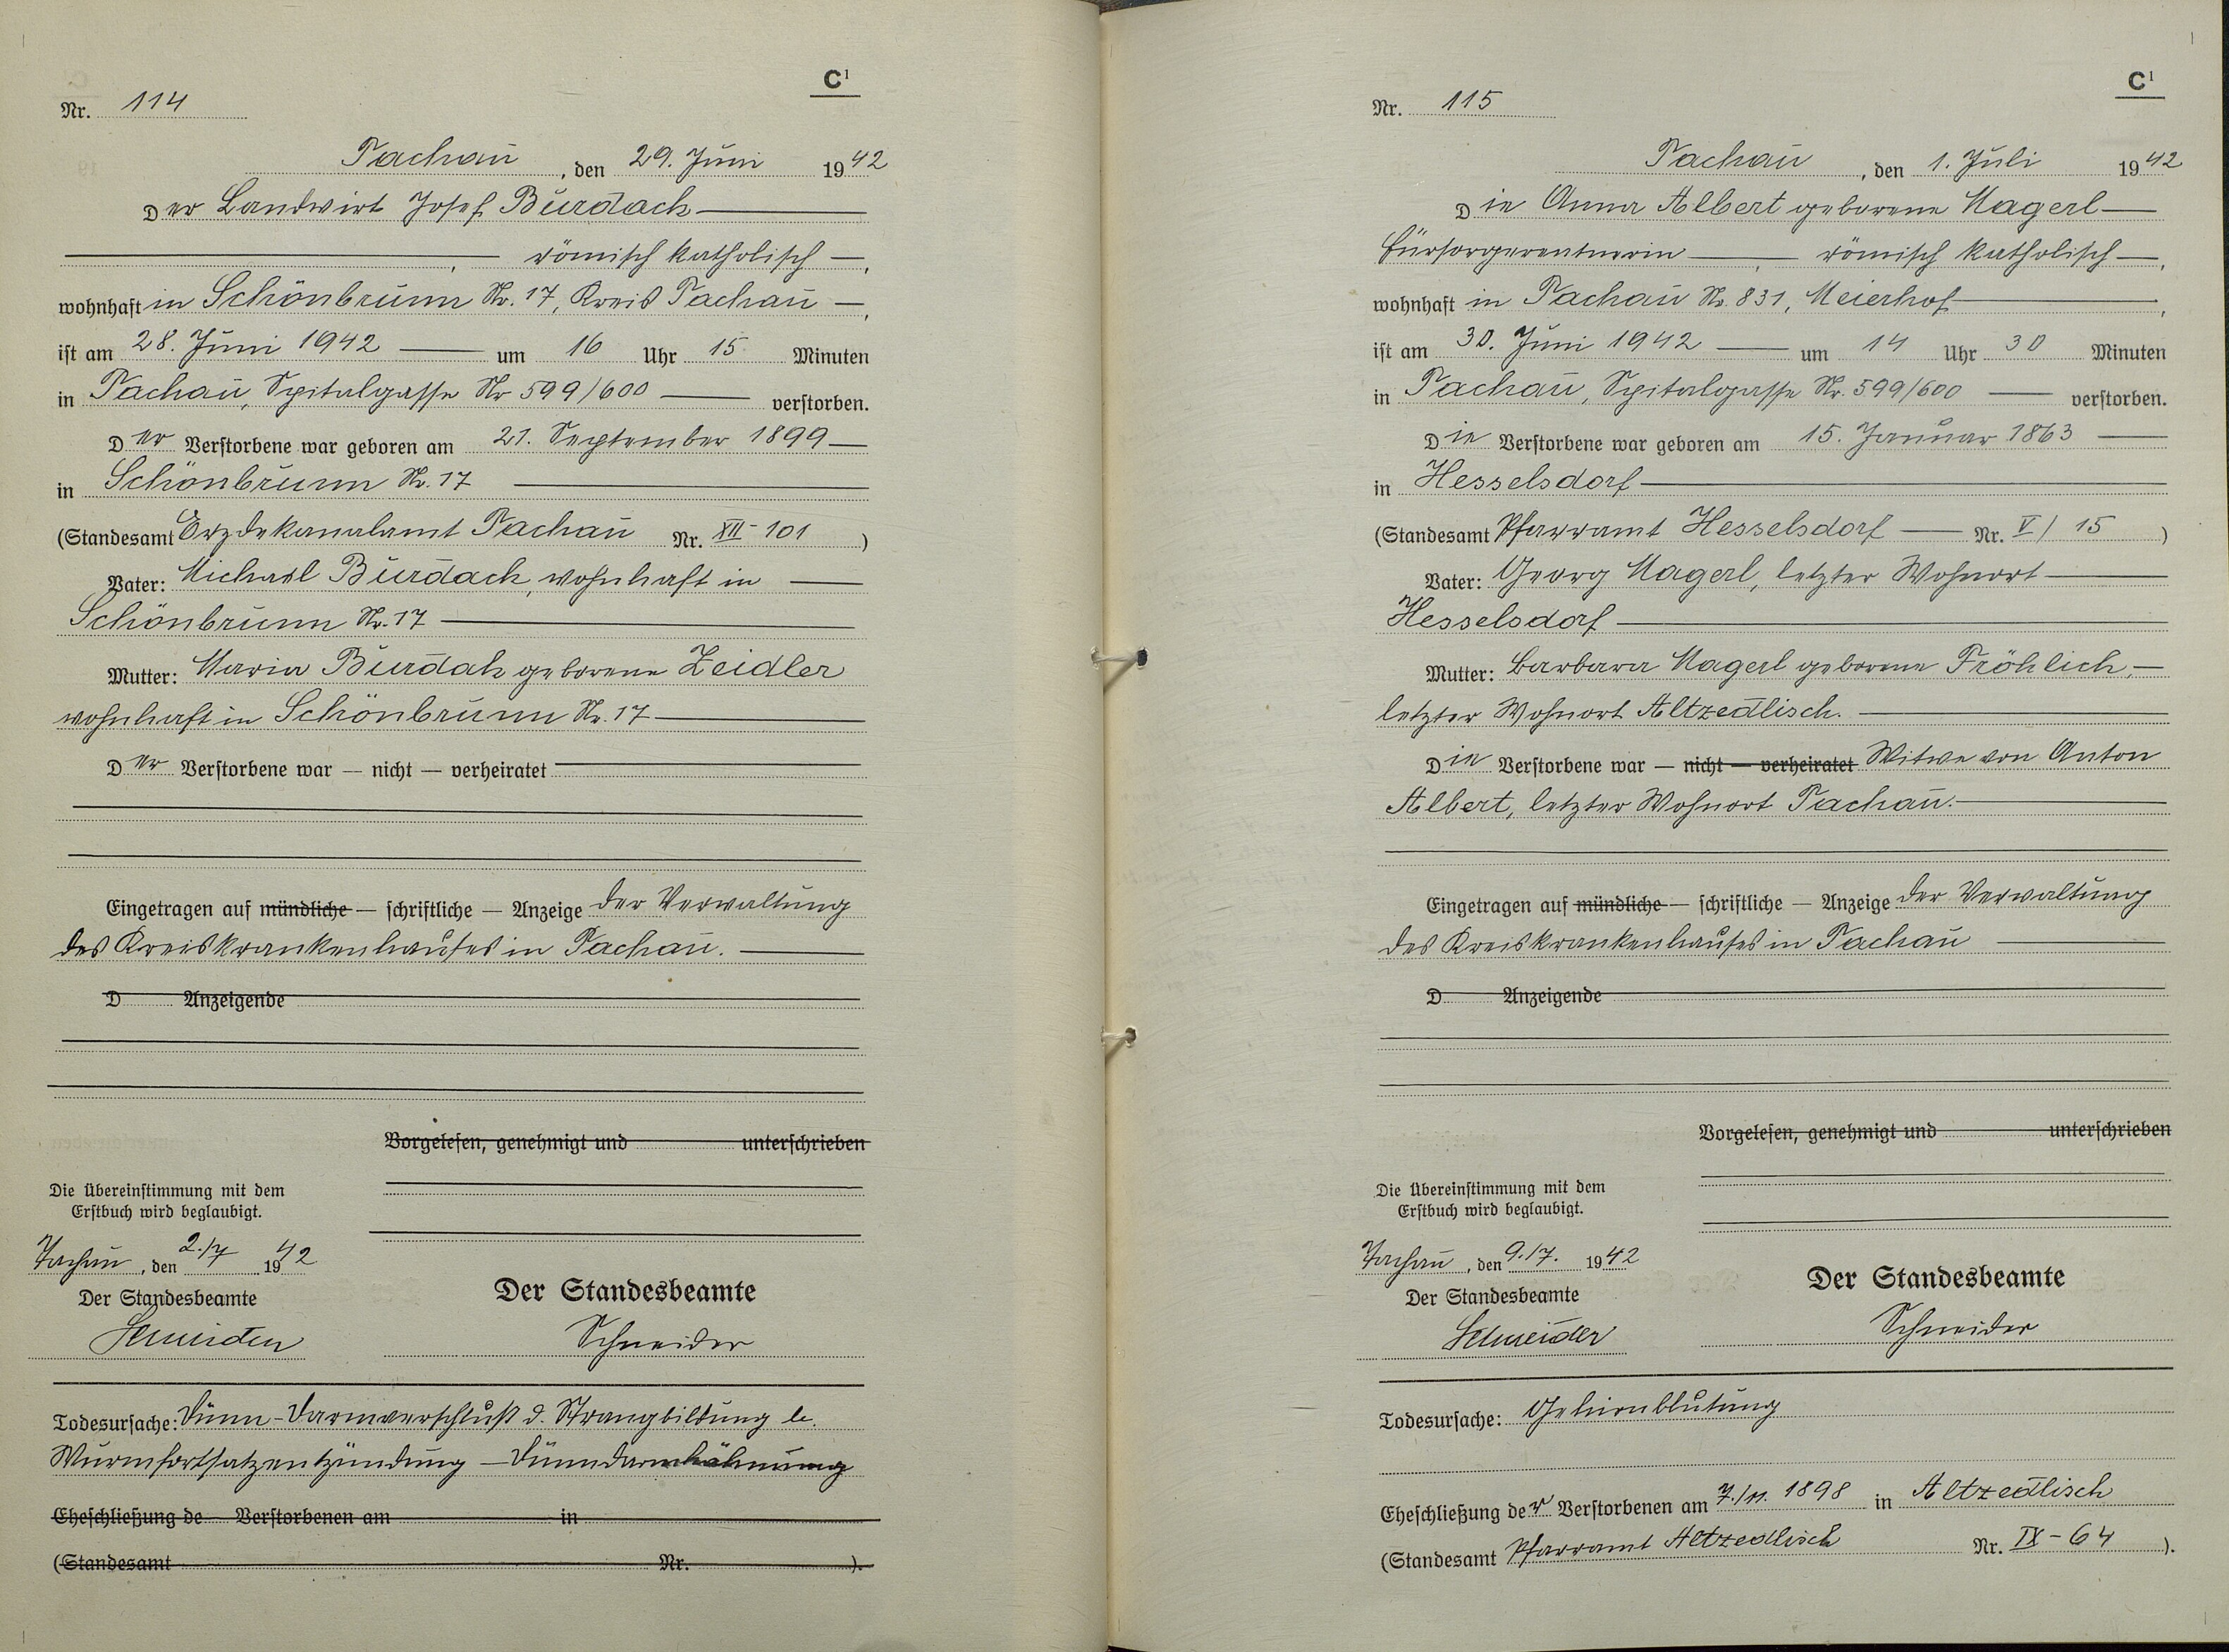 C¹
Nr. 114
Tachau, den 29. Juni 1942
Der Landwirt Josef Burdach
römisch katholisch,
wohnhaft in Schönbrunn Nr. 17, Kreis Tachau,
ist am 28. Juni 1942 um 16 Uhr 15 Minuten
in Tachau, Spitalgasse Nr 599/600 verstorben.
Der Verstorbene war geboren am 21. September 1899
in Schönbrunn Nr. 17
(Standesamt Erzdekanalamt Tachau Nr. XII-101)
Vater: Michael Burdach, wohnhaft in
Schönbrunn Nr. 17
Mutter: Maria Burdach geborene Zeidler
wohnhaft in Schönbrunn Nr. 17
Der Verstorbene war — nicht — verheiratet
Eingetragen auf mündliche — schriftliche — Anzeige der Verwaltung
des Kreiskrankenhauses in Tachau.
D Anzeigende
Vorgelesen, genehmigt und unterschrieben
Die Übereinstimmung mit dem
Erstbuch wird beglaubigt.
Tachau, den 2./7 1942
Der Standesbeamte
Schneider
Der Standesbeamte
Schneider
Todesursache: Dünn-Darmverschluß d. Strangbildung b.
Wurmfortsatzentzündung — Dünndarmlähmung
Eheschließung de Verstorbenen am in
(Standesamt Nr. ).
C¹
Nr. 115
Tachau, den 1. Juli 1942
Die Anna Albert geborene Magerl
Fürsorgerentnerin, römisch katholisch,
wohnhaft in Tachau Nr. 831, Meierhof,
ist am 30. Juni 1942 um 14 Uhr 30 Minuten
in Tachau, Spitalgasse Nr. 599/600 verstorben.
Die Verstorbene war geboren am 15. Januar 1863
in Hesselsdorf
(Standesamt Pfarramt Hesselsdorf Nr. V/15)
Vater: Georg Magerl, letzter Wohnort
Hesselsdorf
Mutter: Barbara Magerl geborene Fröhlich,
letzter Wohnort Altzedlisch.
Die Verstorbene war — nicht — verheiratet Witwe von Anton
Albert, letzter Wohnort Tachau.
Eingetragen auf mündliche — schriftliche — Anzeige der Verwaltung
des Kreiskrankenhauses in Tachau
D Anzeigende
Vorgelesen, genehmigt und unterschrieben
Die Übereinstimmung mit dem
Erstbuch wird beglaubigt.
Tachau, den 9./7. 1942
Der Standesbeamte
Schneider
Der Standesbeamte
Schneider
Todesursache: Gehirnblutung
Eheschließung der Verstorbenen am 7./11. 1898 in Altzedlisch
(Standesamt Pfarramt Altzedlisch Nr. IX-64).